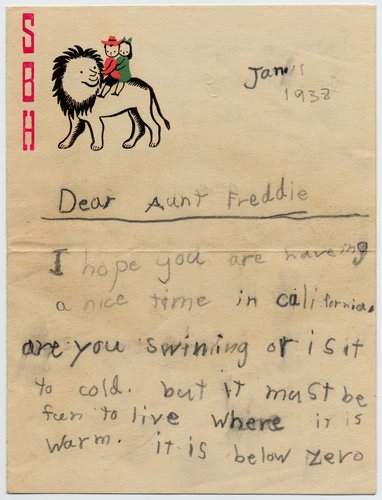 SBH
Jan 1
1938
Dear Aunt Freddie
I hope you are haveing
a nice time in california.
are you swiming or is it
to cold. but it must be
fun to live where it is
warm. it is below zero